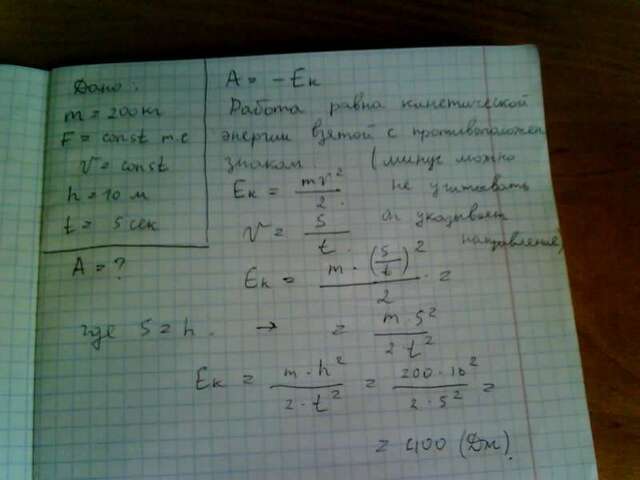 Дано:
m = 200 кг
F = const т.е
v = const
h = 10 м
t = 5 сек
A = ?
A = - Eк
Работа равна кинетической
энергии взятой с противополож
знаком. (минус можно
не учитывать
он указывает
направление)
Eк = mv²/2.
v = S/t.
Eк = m · (S/t)²/2 · =
где S = h. → = m · S²/2t²
Eк = m · h²/2 · t² = 200 · 10²/2 · 5² =
= 400 (Дж).